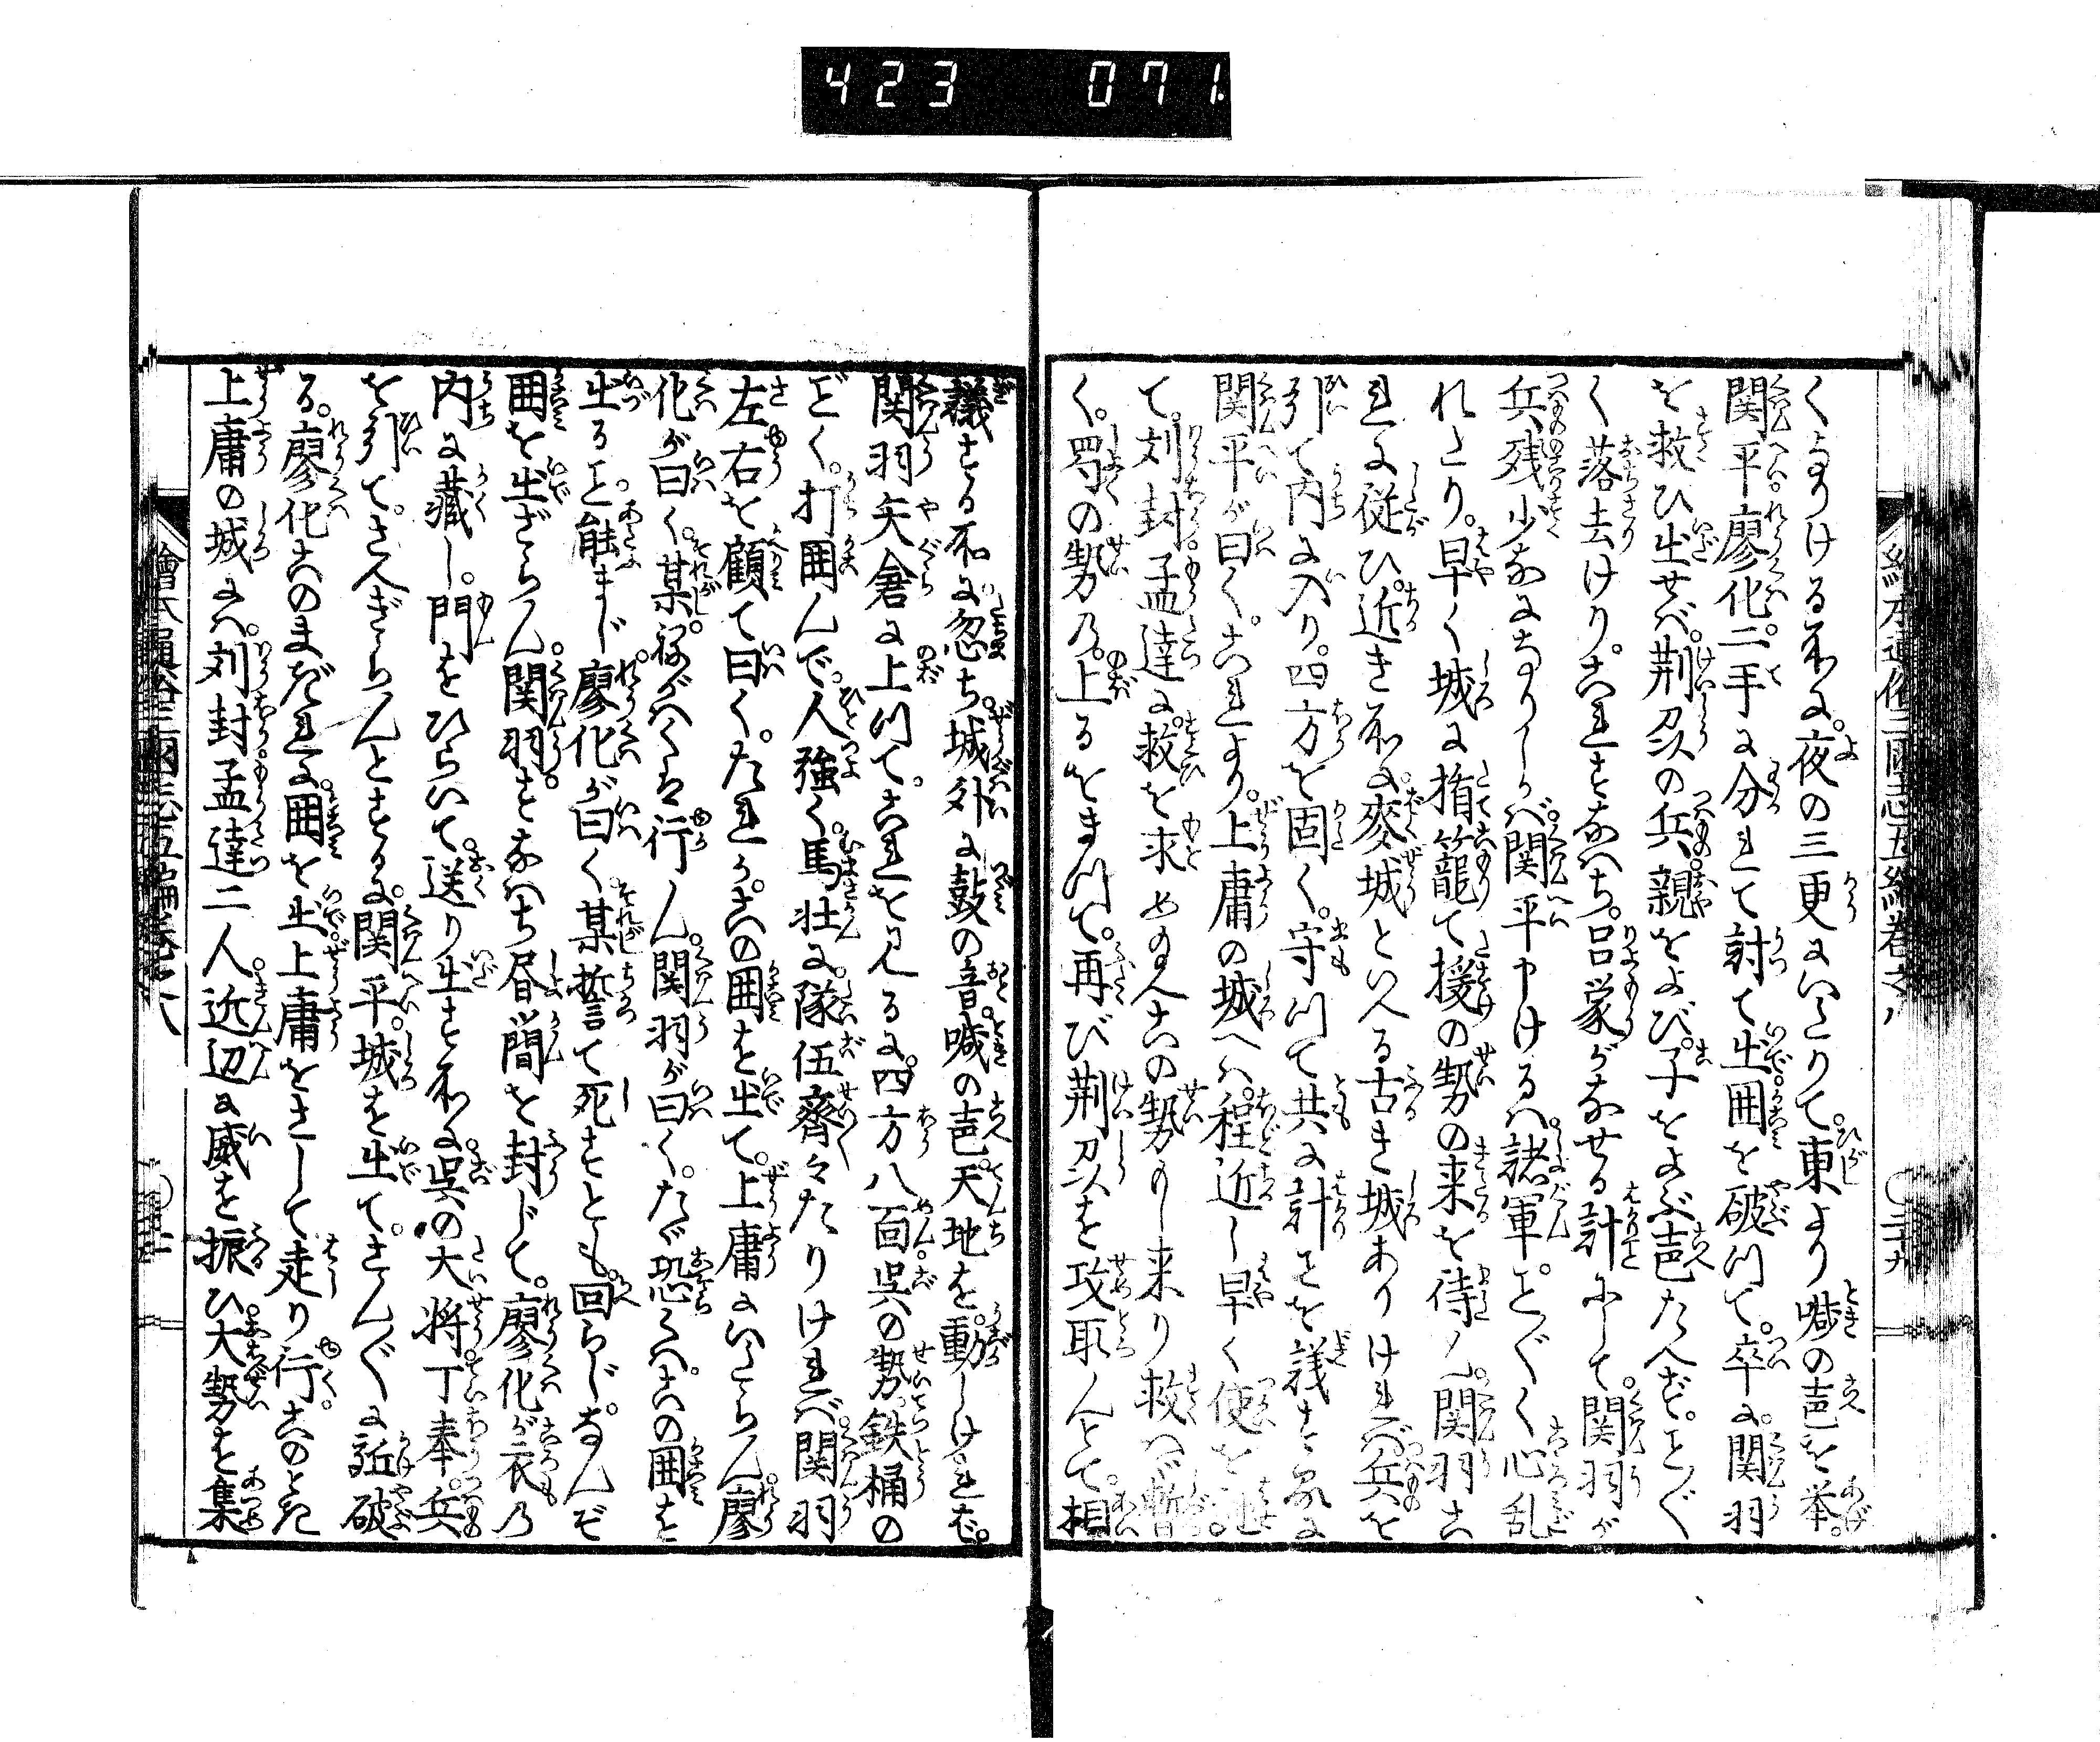 423 071
絵本通俗三国志五編巻之八 ○二十九
くなりける所に。夜の三更にいたりて。東より喊の声を挙。
関平廖化二手に分れて討て出囲を破つて。卒に関羽
を救ひ出せば。荆州の兵親をよび。子をよぶ声たえず。こと〴〵
く落去けり。これすなはち。呂蒙がなせる計にして。関羽が
兵残少なになりしかば関平申けるは諸軍こと〴〵く心乱
れたり。早く城に楯籠て援の勢の来を待ん。関羽こ
れに従ひ。近き所に麥城といへる古き城ありければ兵を
引て内に入り。四方を固く。守つて共に計ことを議するに
関平が曰く。これより。上庸の城へは。程近し早く使を馳。
て。刘封孟達に救を求め給へこの勢もし来り救はゞ暫
く。蜀の勢乃。上るをまつて。再び荆州を攻取んとて。相
議する所に忽ち。城外に鼓の音。喊の声。天地を。動しければ。
関羽矢倉に上つて。これを見るに。四方八面呉の勢。鉄桶の
ごとく。打囲んで。人強く。馬壮に。隊伍齊々たりければ関羽
左右を顧て曰く。たれか。この囲を出て。上庸にいたらん廖
化が曰く。某。祢がはくは行ん。関羽が曰く。たゞ恐らくはこの囲を
出ること。能まじ廖化が曰く。某誓て死すとも回らじ。なんぞ
囲を出ざらん。関羽。すなはち昼間を封じて。廖化が衣乃
内に藏し。門をひらいて。送り出す所に。呉の大将丁奉。兵
を引て。さへぎらんとするに。関平。城を出て。さん〴〵に詬破
る。廖化このまぎれに。囲を出上庸をさして走り行。このとき
上庸の城には。刘封孟達二人。近辺に威を振ひ。大勢を集
繪本通俗三國志五編巻之八